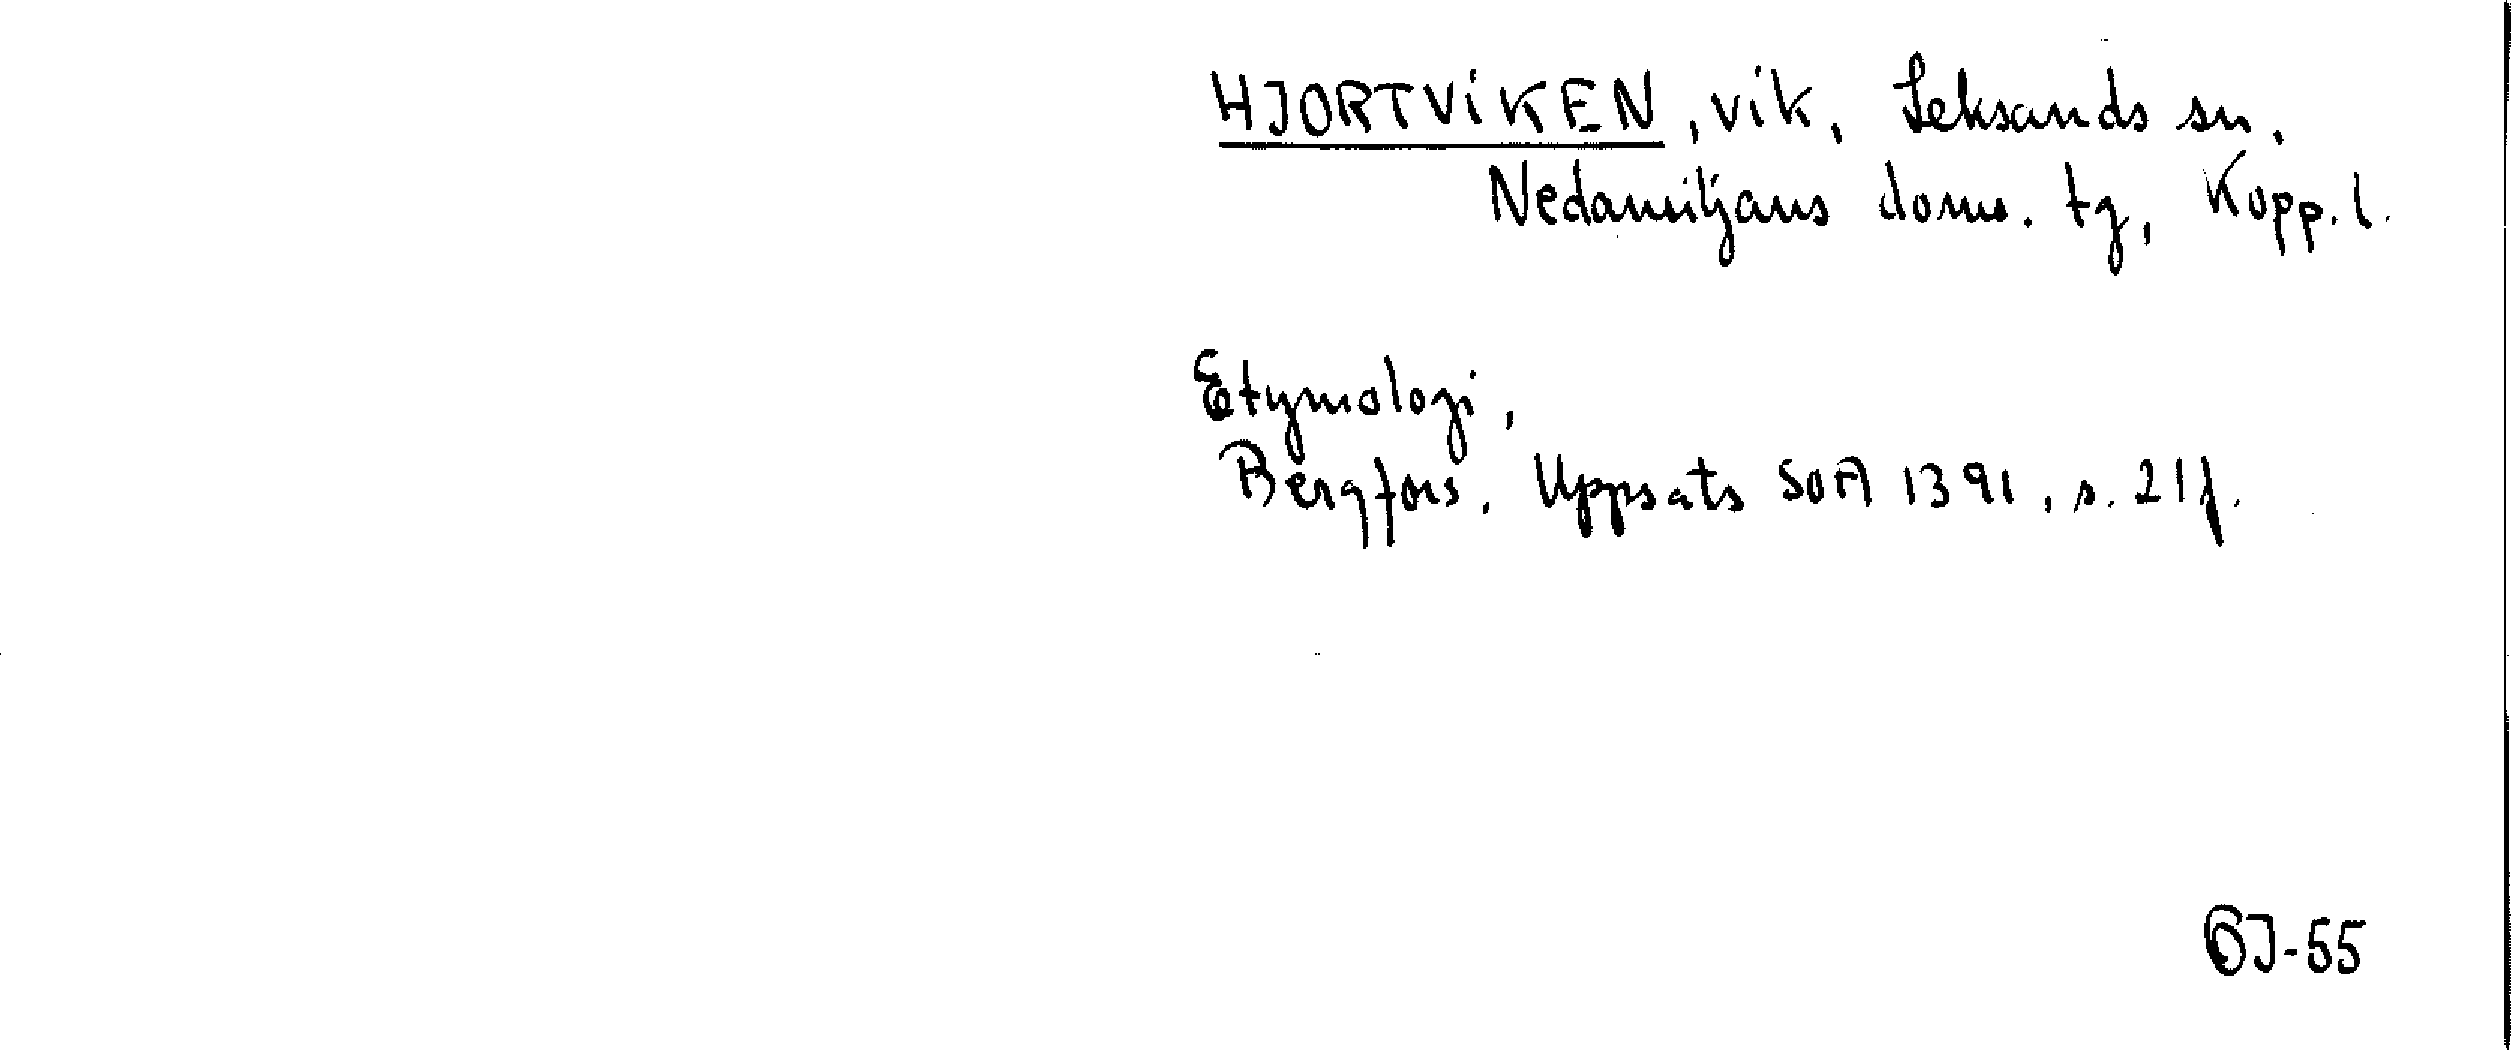 HJORTVIKEN, vik, Leksands sn,
Nedansiljans doms. tg, Kopp. l.
Etymologi,
Bergfors, Uppsats SOA 1391, s. 21f.
GJ-55